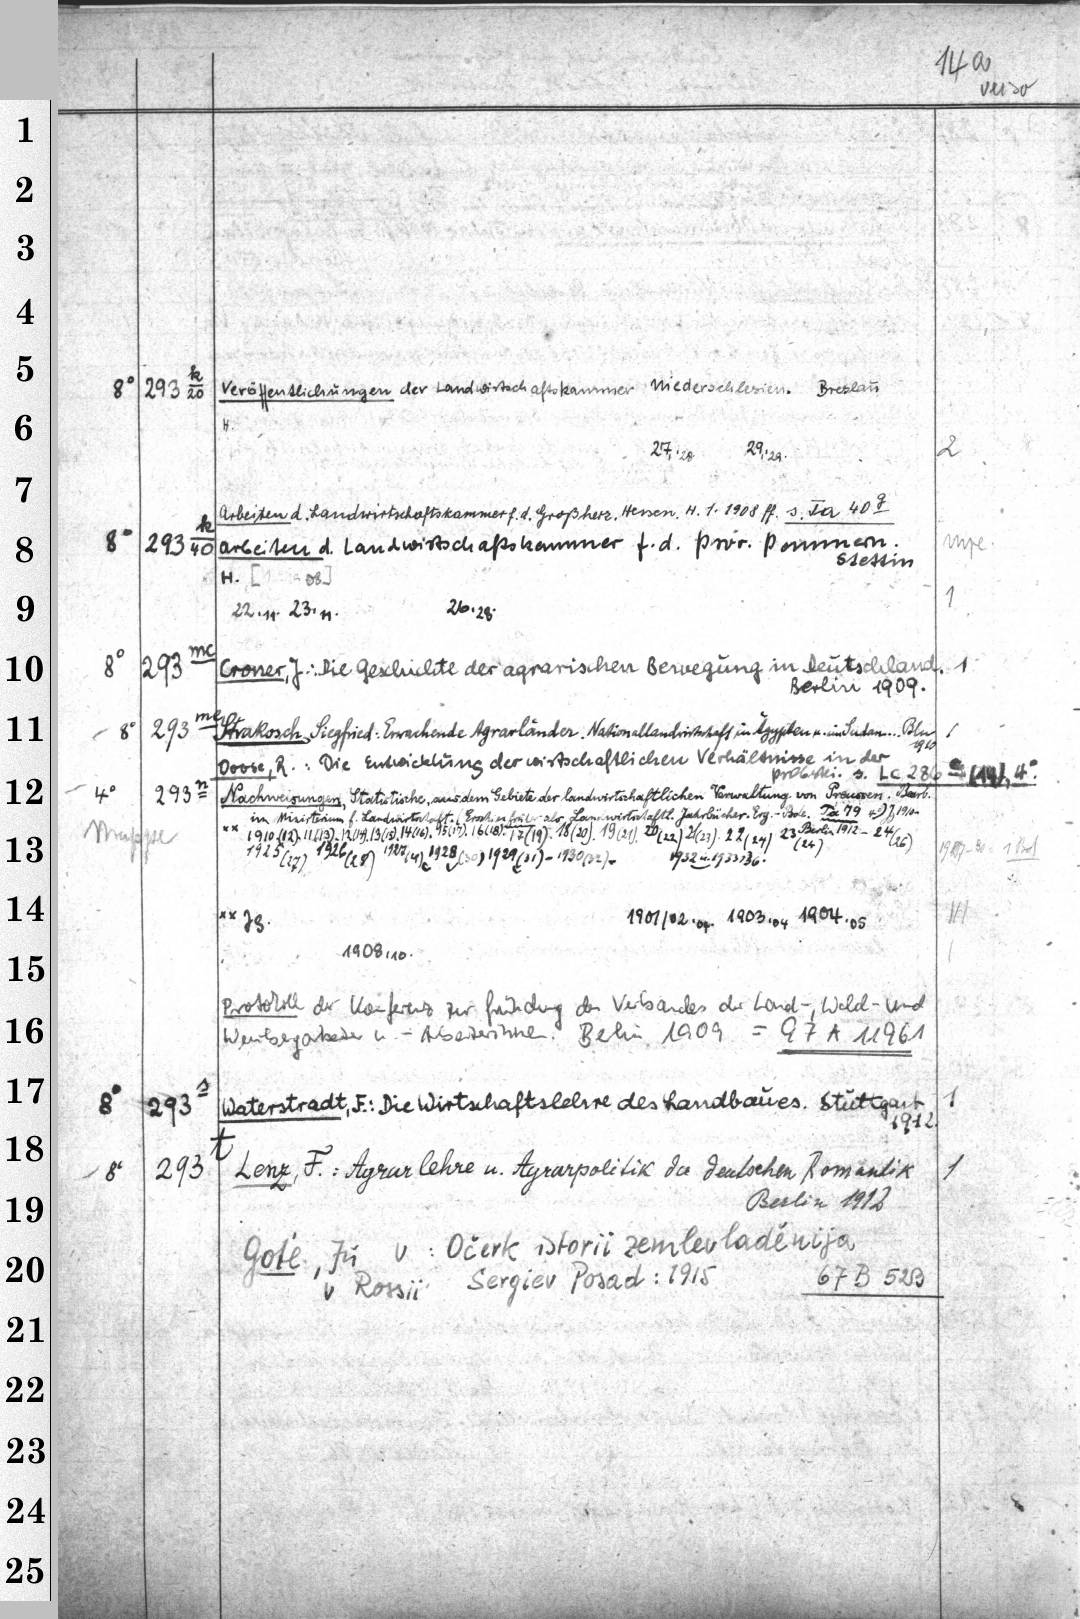 14a
verso
1
2
3
4
5
8° 293 k/20 Veröffentlichungen der Landwirtschaftskammer Niederschlesien. Breslau
6
H.
27.28 29.29. 2
7
Arbeiten d. Landwirtschaftskammer f. d. Großherz. Hessen. H. 1. 1908 ff. s. Ta 40 g
8
8° 293 k/40 Arbeiten d. Landwirtschaftskammer f. d. Prov. Pommern.
Stettin
H. [ 08]
9
22.11. 23.11. 26.28. 1
10
8° 293 mc Croner, J.: Die Geschichte der agrarischen Bewegung in Deutschland. 1
Berlin 1909.
11
8° 293 me Strakosch, Siegfried: Erwachende Agrarländer. Nationallandwirtschaft in Ägypten u. im Sudan... Bln 1
1910
Doose, R.: Die Entwicklung der wirtschaftlichen Verhältnisse in der
Probstei. s. LC 286 (14), 4°.
12
4° 293 n Nachweisungen, Statistische, aus dem Gebiete der landwirtschaftlichen Verwaltung von Preussen. Bearb.
im Ministerium f. Landwirtschaft. (Erschien früher als Landwirtschaftl. Jahrbücher. Erg.-Bde. Ta 79 ) 1910-
Berlin 1912-
** 1910(12). 11(13). 12(14). 13(15). 14(16). 15(17). 16(18). 17(19). 18(20). 19(21). 20(22) 21(23). 22(24) 23(24) 24(26)
13
1925(27) 1926(28) 1927(4) 1928(30) 1929(31)- 1930(32)- 1932 u. 1933:36.
14
** Jg. 1901/02.04. 1903.04 1904.05 III
1908.10. 1
15
Protokoll der Konferenz zur Gründung des Verbandes der Land-, Wald- und
16
Weinbergarbeiter u. -Arbeiterinnen. Berlin 1909 = 97 A 11961
17
8° 293 s Waterstradt, F.: Die Wirtschaftslehre des Landbaues. Stuttgart 1
1912.
18
8° 293 t Lenz, F.: Agrarlehre u. Agrarpolitik der deutschen Romantik 1
19
Berlin 1912
Got'e, Ju V : Očerk istorii zemlevladěnija
20
v Rossii Sergiev Posad: 1915 67 B 523
21
22
23
24
25